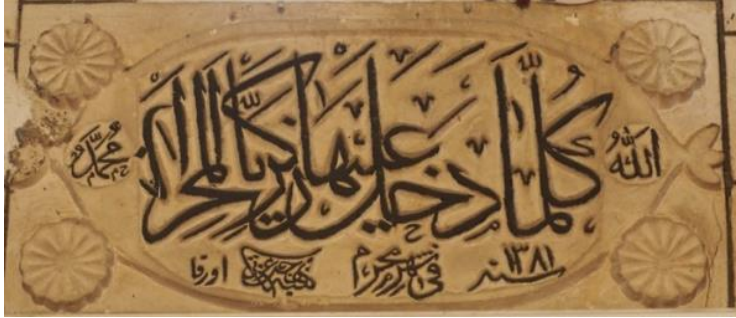 الله
كلما دخل عليها زكريا المحراب
محمد
سنه ١٣٨١ في شهر محرم
اورفا